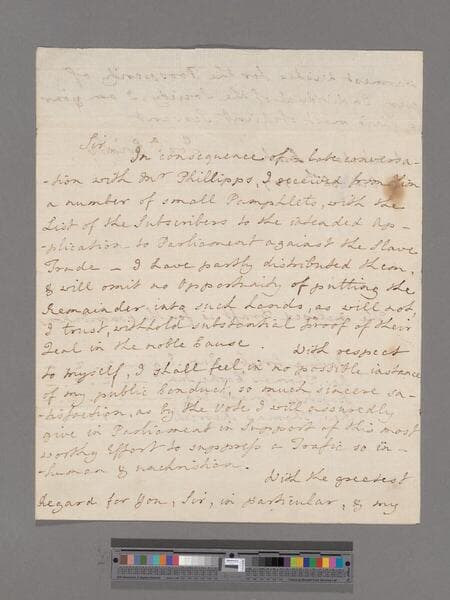 Sir
In consequence of a late conversa-
-tion with Mr Phillipps, I received from him
a number of small Pamphlets, with the
List of the Subscribers to the intended Ap-
-plication to Parliament against the Slave
Trade – I have partly distributed them,
& will omit no opportunity of putting the
Remainder into such hands, as will not,
I trust, withhold substantial proof of their
Zeal in the noble Cause. With respect
to myself, I shall feel in no possible instance
of my public Conduct, so much sincere sa-
-tisfaction, as by the Vote I will assuredly
give in Parliament in Support of this most
worthy Effort to suppress a Trafic so in-
-human & unchristian.
With the greatest
Regard for You, Sir, in particular, & my